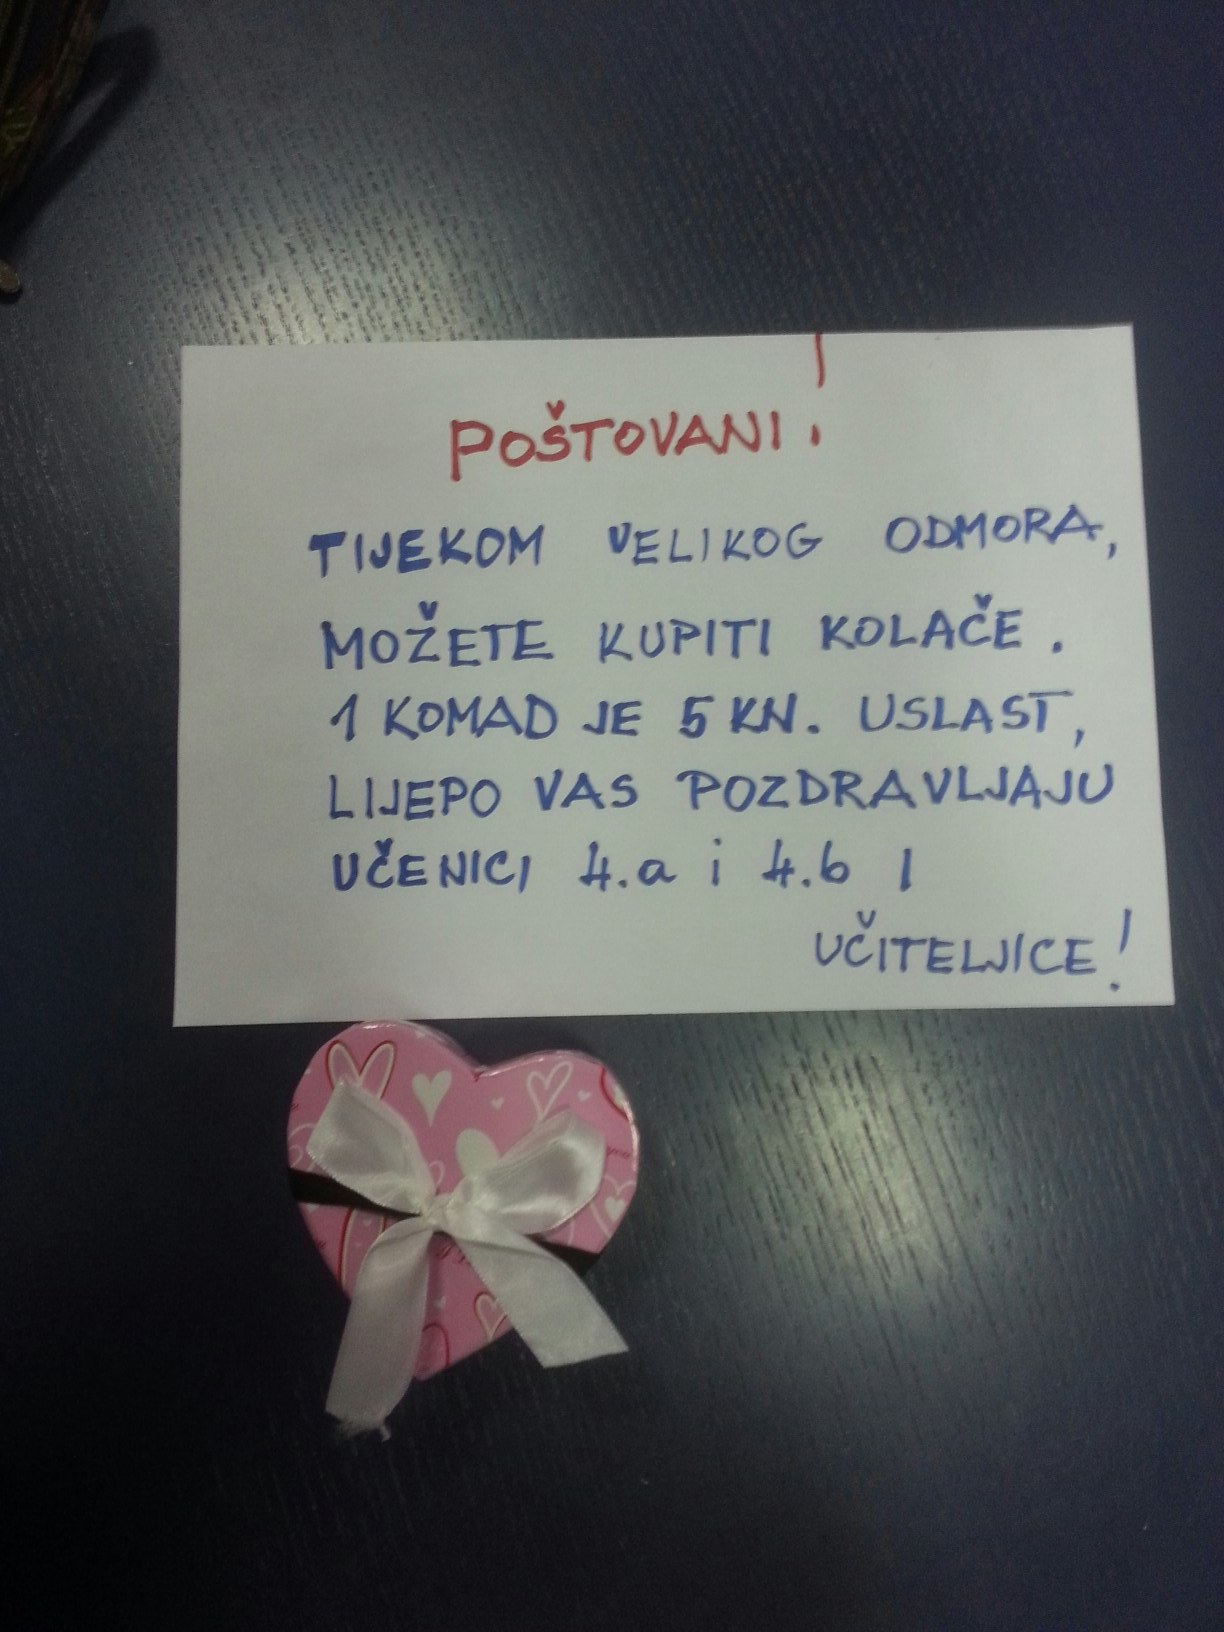 POŠTOVANI!
TIJEKOM VELIKOG ODMORA,
MOŽETE KUPITI KOLAČE.
1 KOMAD JE 5 KN. USLAST,
LIJEPO VAS POZDRAVLJAJU
UČENICI 4.a i 4.b I
UČITELJICE!